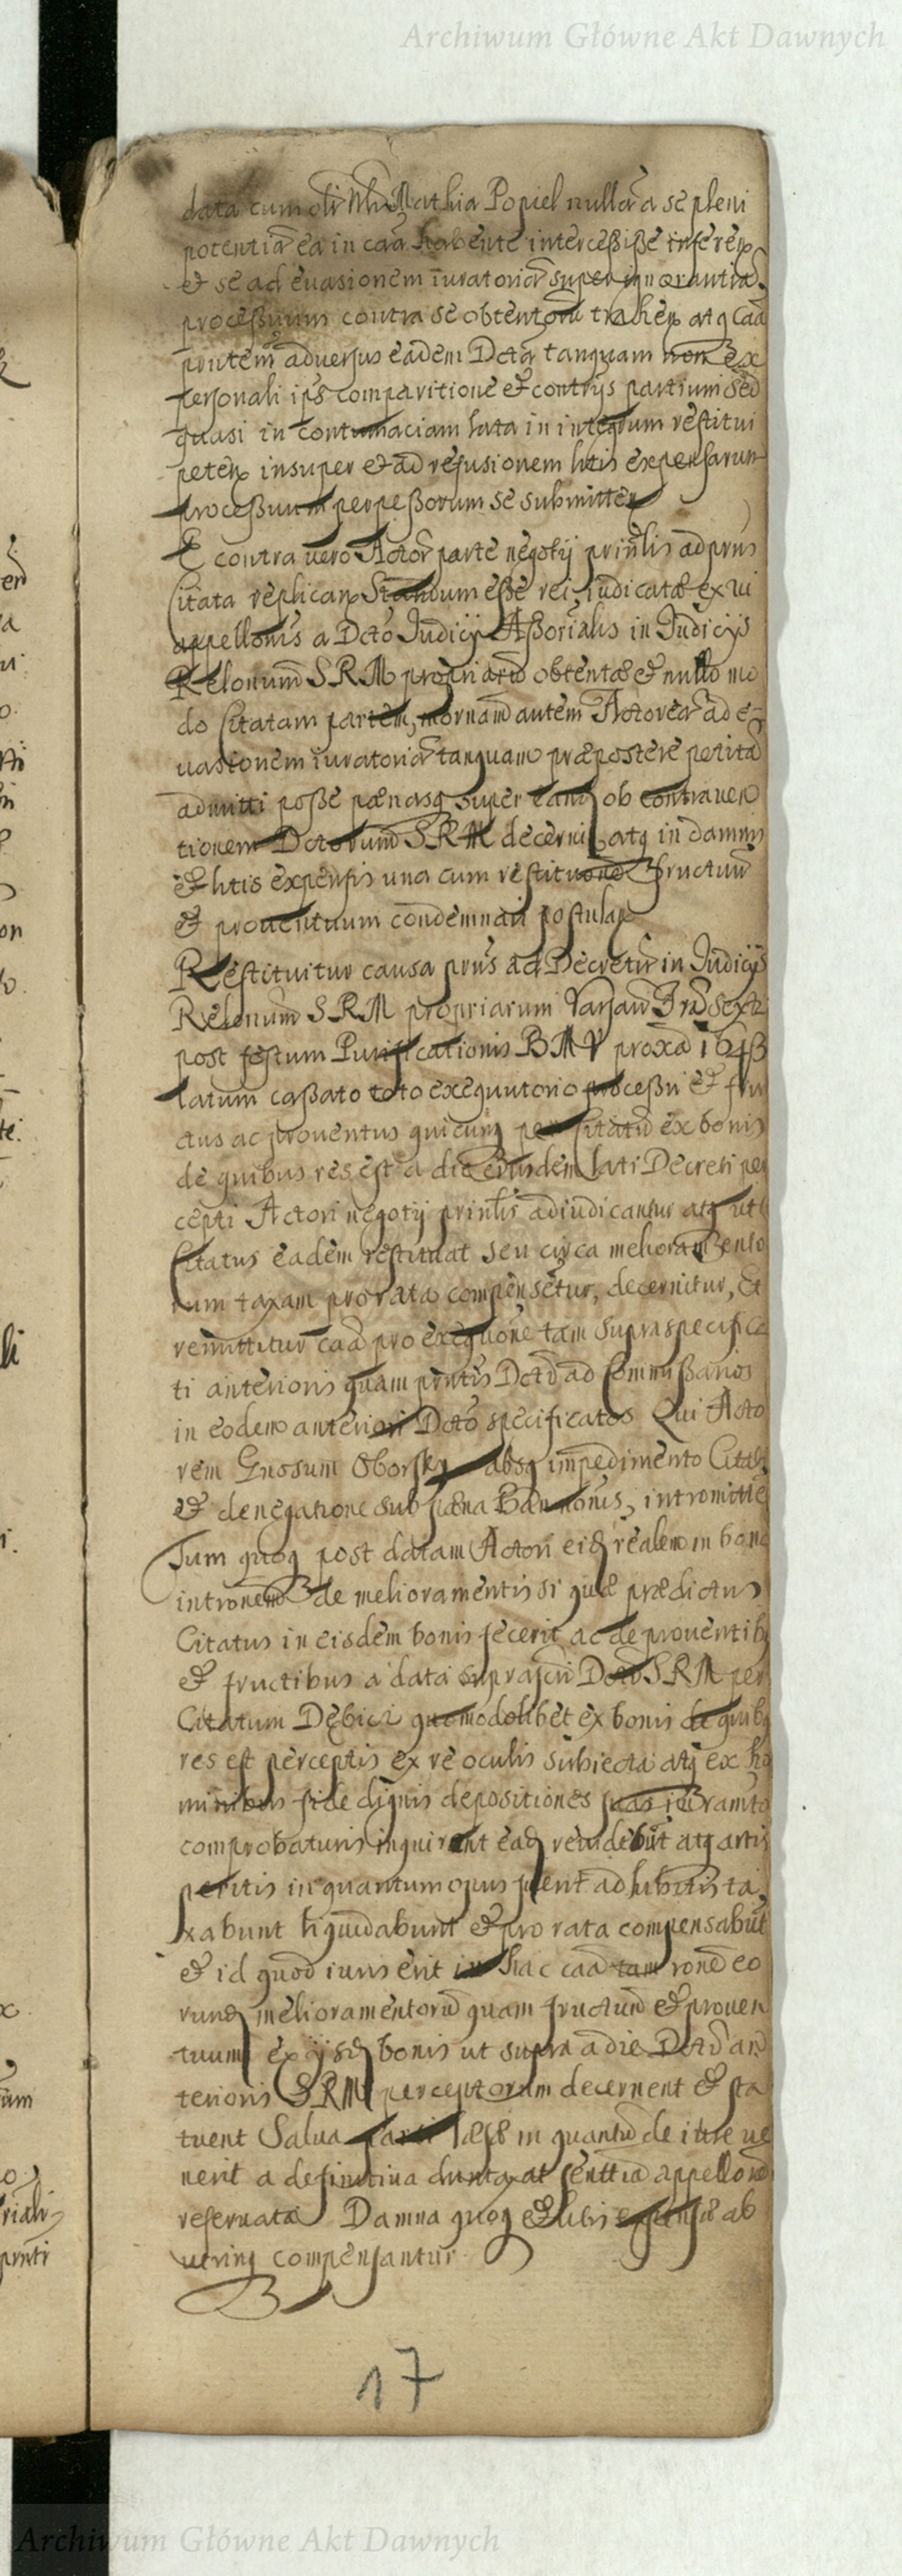 Archiwum Główne Akt Dawnych
data cum olim Mathia Popiel nullam a se pleni
potentiã ea in caã habente intercessisse inferen
et se ad euasionem iuratoriã super ignorantiã
processuum contra se obtentorũ trahen atq caã
pñtem adversus eadem Dcta tanquam non ex
personali ips comparitione et contrijs partium sed
quasi in contumaciam lata in integrum restitui
peten insuper et ad refusionem litis expensarum
processuum perpessorum se submitten
E contra vero Actor parte negotij prinlis ad prns
Citata replican Standum esse rei iudicatæ ex vi
appellonis a Dcto Judicij Assorialis in Judicijs
Relonum S R M propriarũ obtentæ et nullo mo
do Citatam partem, autem Actoreã ad e-
uasionem iuratoriã tanquam præpostere petitã
admitti posse pænasq super ob contraven
tionem Dctorum S R M decerni atq in damnis
et litis expensis una cum restitutione fructuũ
et prouentuum condemnari postulan
Restituitur causa prns ad Decretũ in Judicijs
Relonum S R M propriarum Varsaw sexta
post festum Purificationis B M V proxã 1643
latum cassato toto exequutorio processu et fru
ctus ac prouentus quicunq per Citatũ ex bonis
de quibus res est a die eiusdem lati Decreti per
cepti Actori negotij prinlis adiudicantur atq ut
Citatus eadem restituat seu circa melioramento
rum taxam pro rata compensetur, decernitur, Et
remittitur caã pro exequõne tam supra specifica
ti anterioris quam pñtis Dcti ad Commissarios
in eodem anteriori Dcto specificatos Qui Acto
rem Gnosum Oborsky absq impedimento Citati
et denegatione sub pæna Bannonis, intromitte
Tum quoq post datam Actori eid realem in bona
intronem de melioramentis si quæ prædictus
Citatus in eisdem bonis fecerit ac de prouentib
et fructibus a data suprascri Dcti S R M per
Citatum Dębicki quomodolibet ex bonis de quibq
res est perceptis ex re oculis subiecta atq ex ho
minibus fide dignis depositiones suas iuramto
comprobaturis inquirent eaq reuidebũt atq artis
peritis in quantum opus fuerit adhibitis ta,
xabunt liquidabunt et pro rata compensabũt
et id quod iuris erit in hac caã tam rone eo
rund melioramentorũ quam fructuũ et prouen
tuum ex ijsd bonis ut supra a die Dcti an
terioris S R M perceptorum decernent et sta
tuent Salua parti læsæ in quantũ de iure ve
nerit a definitiua duntaxat senttia appellone
reservata Damna quoq et litis expensæ ab
utrinq compensantur
17
Archiwum Główne Akt Dawnych